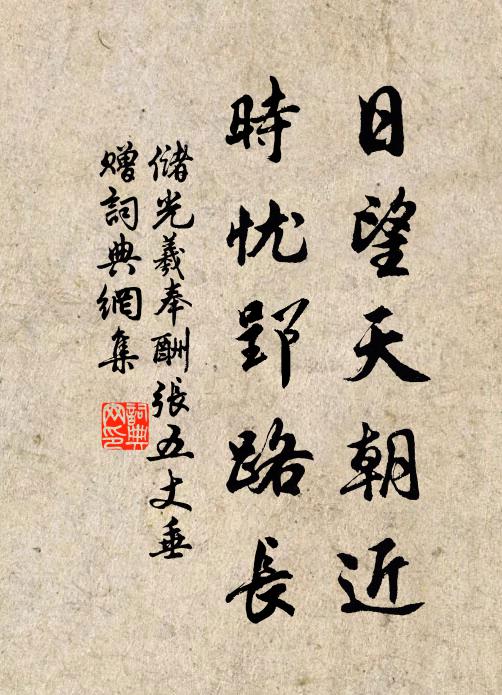 日望天朝近
時忧郢路長
儲光羲奉酬張五丈垂
贈詞典網集
詞典網印